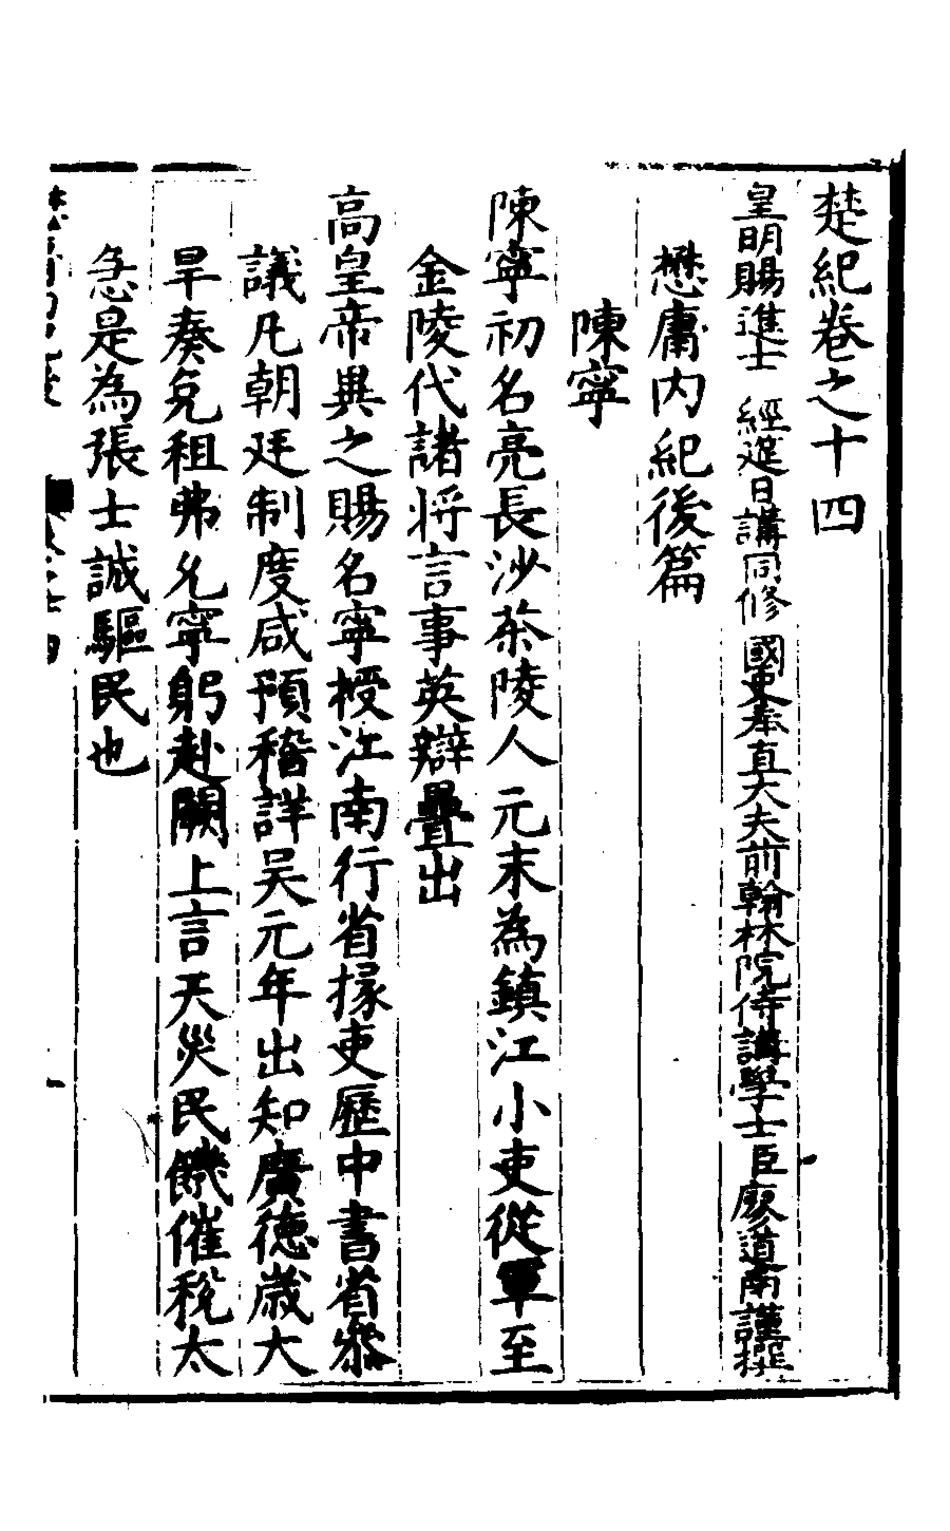 楚紀卷之十四
皇明賜進士 經筵日講同修 國史奉直大夫前翰林院侍講學士臣廖道南謹撰
懋庸內紀後篇
陳寧
陳寧初名亮長沙茶陵人元末為鎮江小吏從軍至
金陵代諸将言事英辯疊出
高皇帝異之賜名寧授江南行省掾吏歷中書省叅
議凡朝廷制度咸預稽詳吴元年出知廣德歲大
旱奏免租弗允寧躬赴闕上言天災民饑催稅太
急是為張士誠驅民也